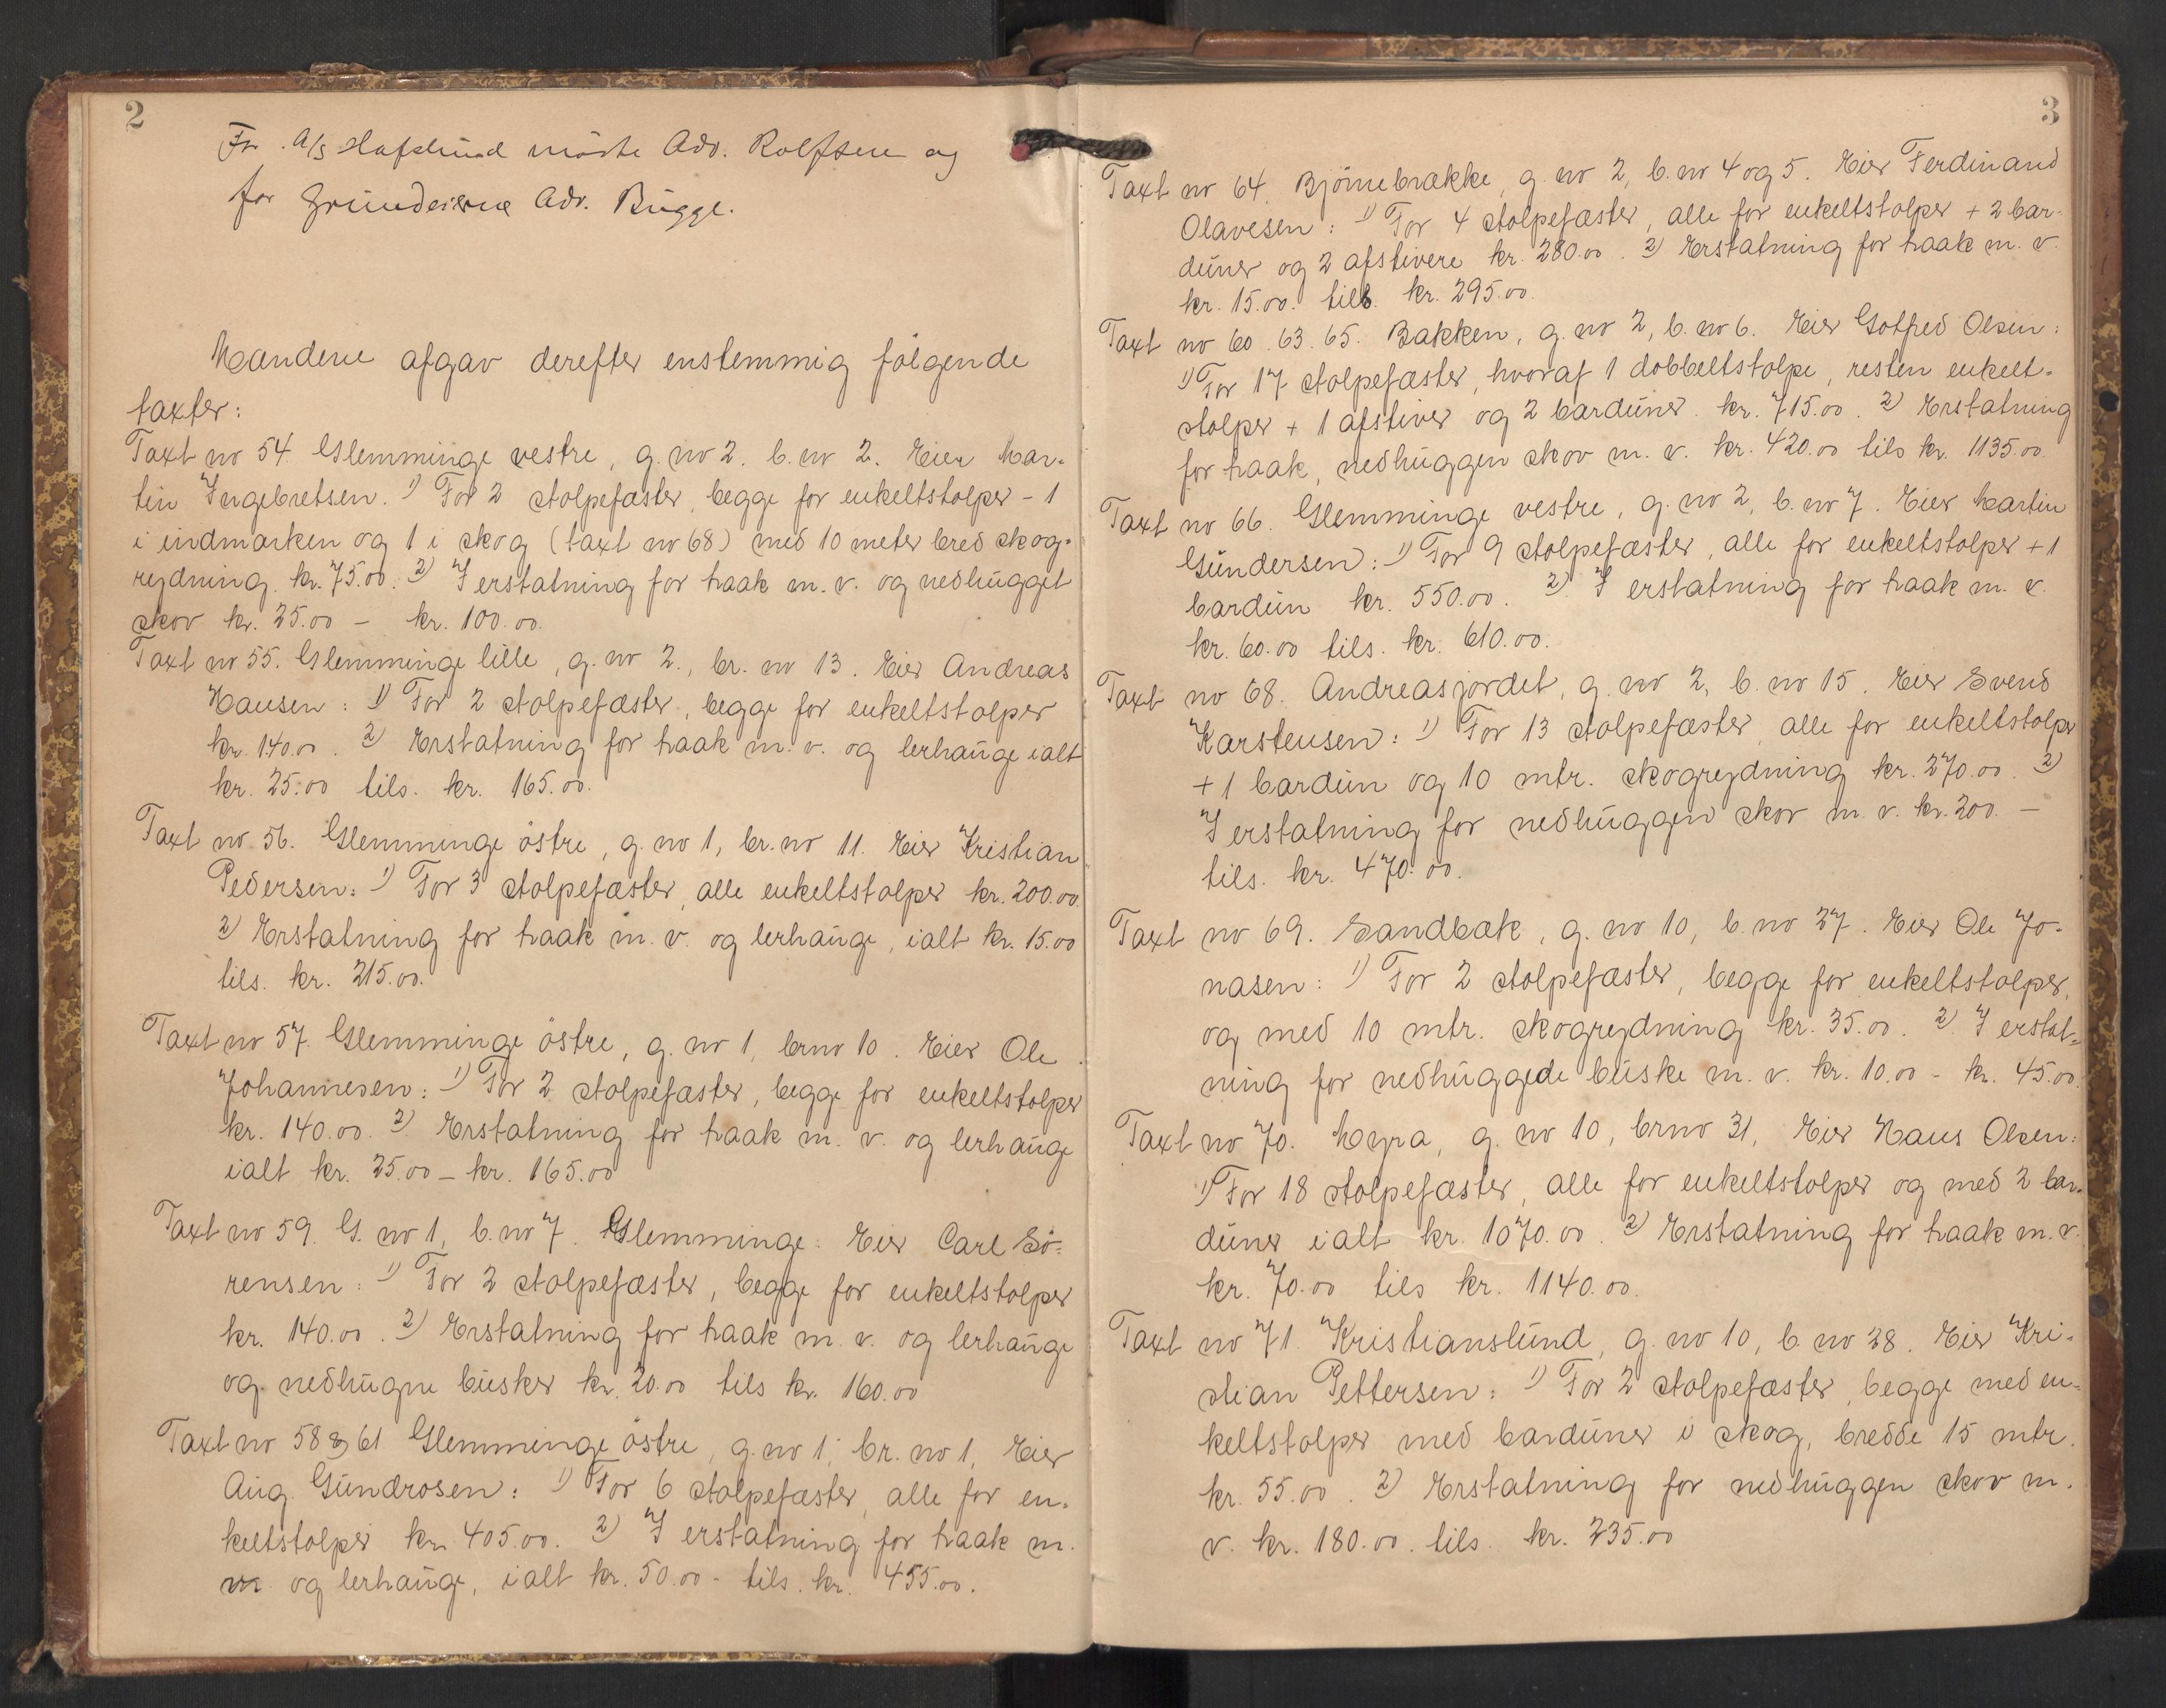 2
For A/S Hafslund mötte Adv. Rolfsen og
for Grundeierne Adv. Bugge.
Mændene afgav derefter enstemmig følgende
taxter:
Taxt no 54. Glemminge vestre, g. no 2. b. no 2. Eier Mar-
tin Ingebretsen. 1) For 2 stolpefæster, begge for enkeltstolper - 1
i indmarken og 1 i skog (taxt no 68) med 10 meter bred skog-
rydning. kr. 75.00. 2) I erstatning for haak m. v. og nedhugget
skov kr. 25.00 - kr. 100.00.
Taxt no 55. Glemminge lille, g. no 2., br. no 13. Eier Andreas
Hansen: 1) For 2 stolpefæster, begge for enkeltstolper
kr. 140.00. 2) Erstatning for haak m. v. og lerhauge ialt
kr. 25.00 tils. kr. 165.00.
Taxt no 56. Glemminge östre, g. no 1, br. no 11. Eier Kristian
Pedersen: 1) For 3 stolpefæster, alle enkeltstolper kr. 200.00
2) Erstatning for haak m. v. og lerhauge, ialt kr. 15.00
tils. kr. 215.00.
Taxt no 57. Glemminge östre, g. no 1, brno 10. Eier Ole
Johannesen: 1) For 2 stolpefæster, begge for enkeltstolper
kr. 140.00. 2) Erstatning for haak m. v. og lerhauge
ialt kr. 25.00 - kr. 165.00
Taxt no 59. G. no 1, b. no 7. Glemminge. Eier Carl Sö-
rensen: 1) For 2 stolpefæster, begge for enkeltstolper
kr. 140.00. 2) Erstatning for haak m. v. og lerhauge
og nedhugne busker kr. 20.00 tils kr. 160.00
Taxt no 58 & 61 Glemminge östre, g. no 1, br. no 1, Eier
Aug. Gundrosen: 1) For 6 stolpefæster, alle for en-
keltstolper kr. 405.00. 2) I erstatning for haak m.
m. og lerhauge, ialt kr. 50.00 - tils. kr. 455.00.
3
Taxt no 64. Bjönnebrække, g. no 2, b. no 4 og 5. Eier Ferdinand
Olavesen: 1) For 4 stolpefæster, alle for enkeltstolper + 2 bar-
duner og 2 afstivere kr. 280.00. 2) Erstatning for haak m. v.
kr. 15.00. tils. kr. 295.00.
Taxt no 60. 63. 65. Bakken, g. no 2, b. no 6. Eier Gotfred Olsen:
1) For 17 stolpefæster, hvoraf 1 dobbeltstolpe, resten enkelt-
stolper + 1 afstiver og 2 barduner. kr. 715.00. 2) Erstatning
for haak, nedhuggen skov m. v. kr. 420.00 tils kr. 1135.00.
Taxt no 66. Glemminge vestre, g. no 2, b. no 7. Eier Martin
Gundersen: 1) For 9 stolpefæster, alle for enkeltstolper + 1
bardun kr. 550.00. 2) I erstatning for haak m. v.
kr. 60.00 tils. kr. 610.00.
Taxt no 68. Andreasjordet, g. no 2, b. no 15. Eier Svend
Karstensen: 1) For 13 stolpefæster, alle for enkeltstolper
+ 1 bardun og 10 mtr. skogrydning kr. 270.00. 2)
I erstatning for nedhuggen skov m. v. kr. 200. -
tils. kr. 470.00.
Taxt no 69. Sandbak, g. no 10, b. no 27. Eier Ole Jo-
nasen: 1) For 2 stolpefæster, begge for enkeltstolper,
og med 10 mtr. skogrydning kr. 35.00. 2) I erstat-
ning for nedhuggede buske m. v. kr. 10.00 - kr. 45.00.
Taxt no 70. Myra, g. no 10, brno 31, Eier Hans Olsen:
1) For 18 stolpefæster, alle for enkeltstolper og med 2 bar-
duner ialt kr. 1070.00. 2) Erstatning for haak m. v.
kr. 70.00 tils kr. 1140.00.
Taxt no 71. Kristianslund, g. no 10, b. no 28. Eier Kri-
stian Pettersen: 1) For 2 stolpefæster, begge med en-
keltstolper med barduner i skog, bredde 15 mtr.
kr. 55.00. 2) Erstatning for nedhuggen skov m.
v. kr. 180.00. tils. kr. 235.00